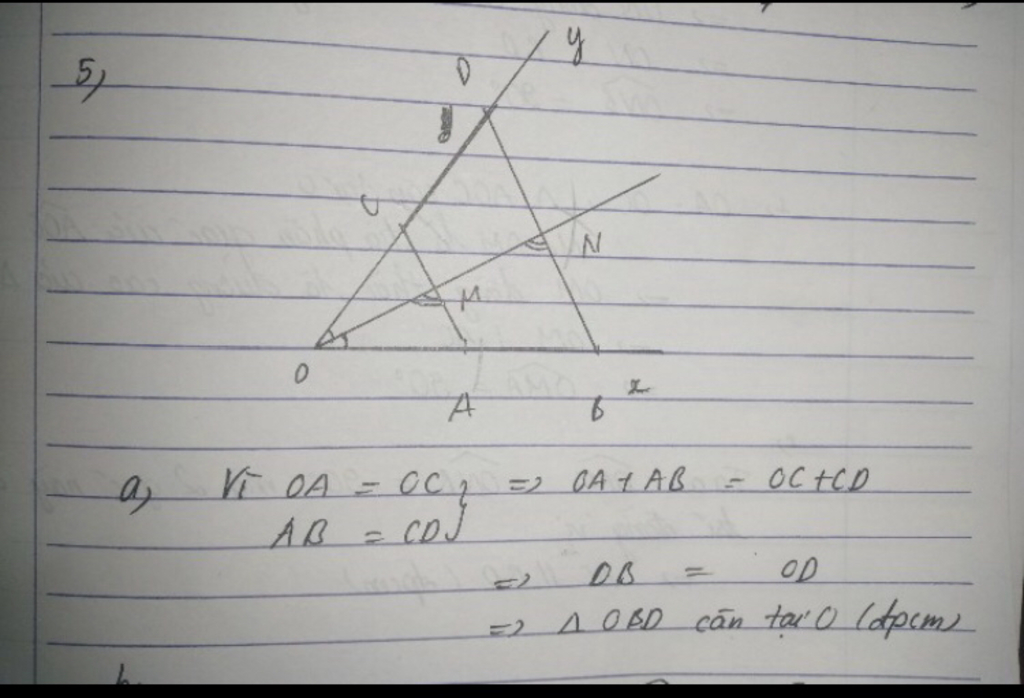 5,
D
y
C
N
M
O
A
B
x
a, Vì OA = OC } => OA + AB = OC + CD
AB = CD
=> OB = OD
=> Δ OBD cân tại O (đpcm)